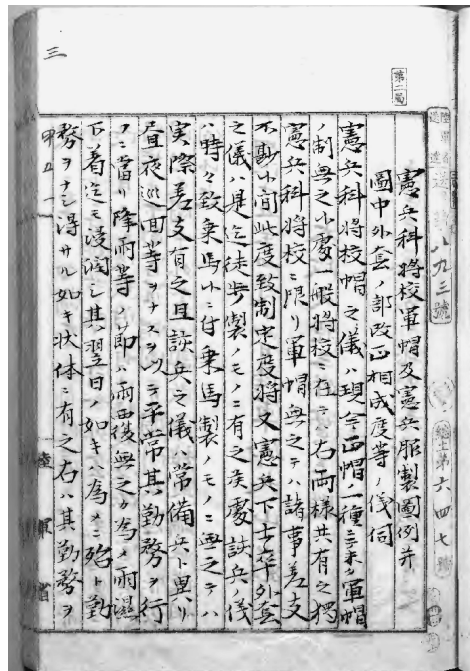 三
第二局
八九三號
總土第六四七號
憲兵科將校軍帽及憲兵服製圖例并
圖中外套ノ部改正相成度等ノ儀伺
憲兵科將校帽之儀ハ現今正帽一種ニシテ軍帽
ノ制無之一般將校ニ在テハ右両様共有之獨
憲兵科將校ニ限リ軍帽無之テハ諸事差支
不尠ニ間此度致制定度將又憲兵下士卒外套
之儀ハ是迄徒歩製ノモノニ有之候處該兵ノ儀
ハ時々致乗馬ニ付乗馬製ノモノニ無之テハ
実際差支有之且該兵之儀ハ常備兵ト異リ
昼夜巡回等ヲナスヲ以テ平常其勤務ヲ行
フニ當リ降雨等ノ節ハ雨覆無之カ為メ雨濕
下着迄モ浸潤シ其翌日ノ如キハ為メニ殆ト勤
務ヲナシ得サル如キ状体ニ有之右ハ其勤務ヲ
陸軍省